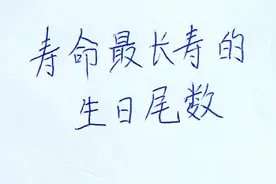 寿命最长寿的
生日尾数